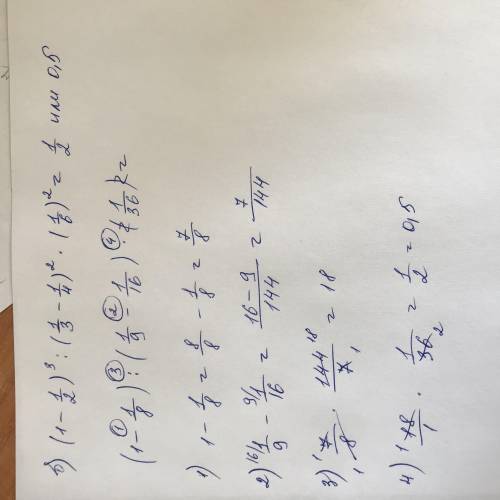 б) (1 - 1/2)³ : (1/3 - 1/4)² · (1/6)² = 1/2 или 0,5
(1 -① 1/8) :③ (1/9 -② 1/16) ·④ (1/36) =
1) 1 - 1/8 = 8/8 - 1/8 = 7/8
2) ¹⁶1/9 - ⁹1/16 = 16-9/144 = 7/144
3) ¹7/8₁ · 144¹⁸/7₁ = 18
4) ¹18/1 · 1/36₂ = 1/2 = 0,5